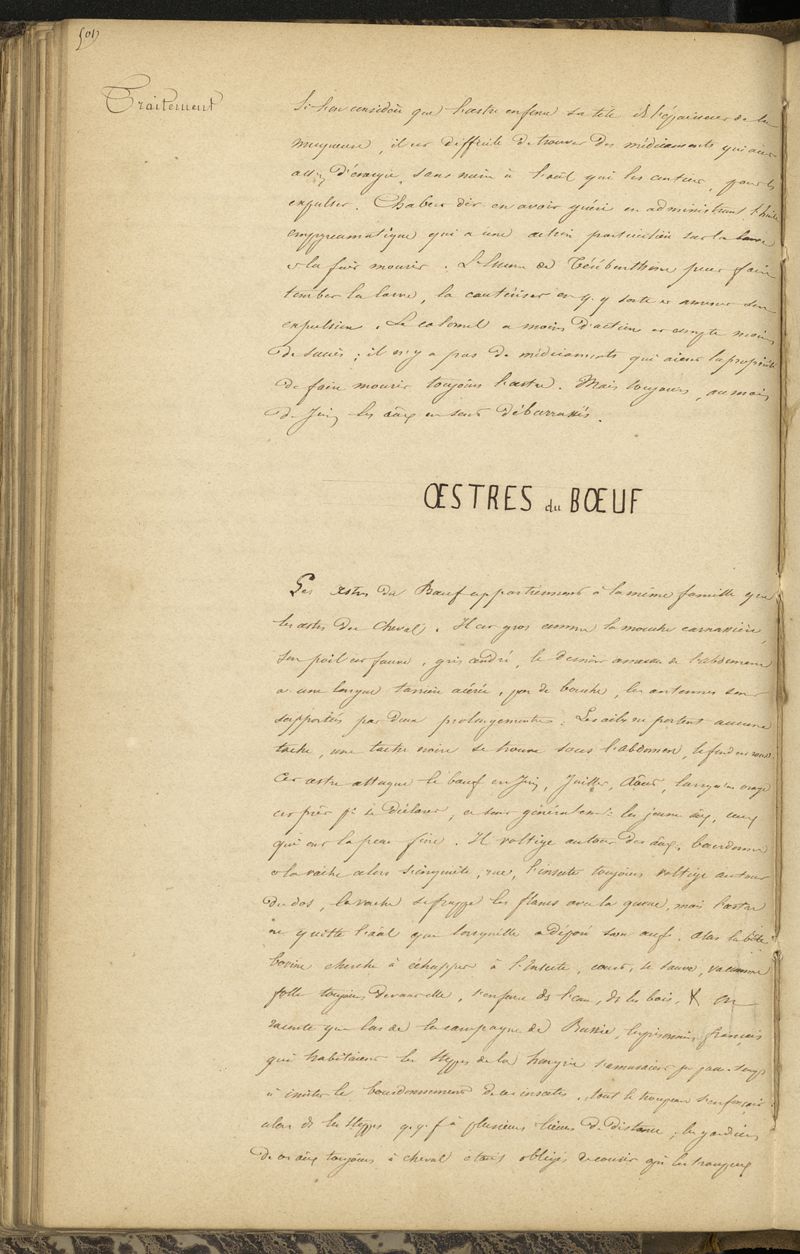 501)
Traitement
Si l'on considère que l'œstre enfonce sa tête ds l'épaisseur de la
muqueuse, il est difficile de trouver des médicaments qui aient
assez d'énergie, sans nuire à l'œil qui les contient, pour les
expulser. Chabert dit en avoir guéri en administrant l'huile
empyreumatique qui a une action particulière sur la larve
et la fait mourir. L'essence de Térébenthine peut faire
tomber la larve, la cautériser en q.q sorte et amener son
expulsion. Le calomel a moins d'action et compte moins
de succès ; il n'y a pas de médicaments qui aient la propriété
de faire mourir toujours l'œstre. Mais toujours, au mois
de Juin les aux en sont débarrassés.
ŒSTRES du BŒUF
Les œstres du Bœuf appartiennent à la même famille que
les œstres du Cheval. Il est gros comme la mouche carnassière,
son poil est fauve, gris cendré, le dernier anneau de l'abdomen
a une longue tarière acérée, pas de bouche, les antennes sont
supportées par deux prolongements. Les ailes ne portent aucune
tache, une tache noire se trouve sous l'abdomen, le fond est
Cet œstre attaque le bœuf en Juin, Juillet, Août, lorsqu'un orage
est prêt pr se déclarer, ce sont généralemt les jeunes aux, ceux
qui ont la peau fine. Il voltige autour des aux, bourdonne
et la vache alors s'inquiète, rue, l'insecte toujours voltige autour
du dos, la vache se frappe les flancs avec la queue, mais l'œstre
ne quitte l'aal que lorsqu'elle a déposé son œuf. Alors la bête
bovine cherche à échapper à l'Insecte, court, se sauve, va comme
folle toujours devant elle, s'enfonce ds l'eau, ds les bois, X On
raconte que lors de la campagne de Russie, les prisonniers français
qui habitaient les Steppes de la Hongrie s'amusaient pr passe-temps
à imiter le bourdonnement de ces insectes. tout le troupeau s'enfonçait
alors ds les Steppes q.q.f à plusieurs lieues de distance, les gardiens
de ces aux toujours à cheval étant obligés de courir après les troupeaux